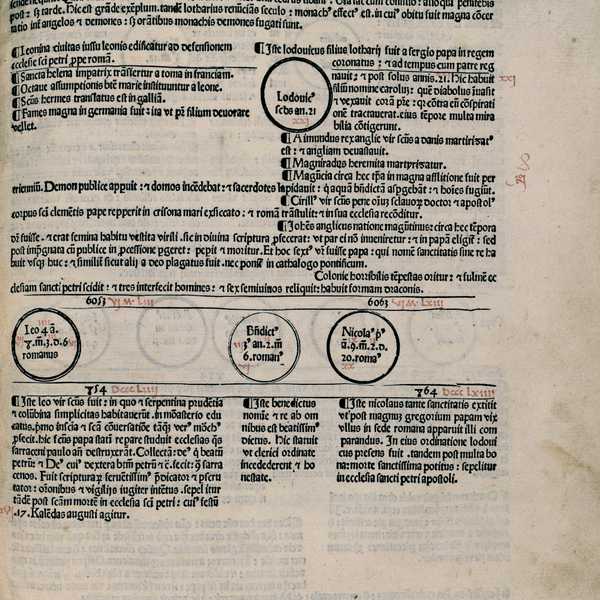 post: Hic est grāde exēplum. tandē lotharius renūciās seculo: monach⁹ effect⁹ est. in cui⁹ obitu fuit magna cōcer
ratio int̄ angelos ⁊ demones: sʒ orōtibus monachis demones fugati sunt.
¶Leonina ciuitas iussu leonis edificatur ad defensionem
ecclesie scī petri ꝓpe romā.
¶Sancta helena impatrix trāsfertur a roma in franciam.
¶Octaue assumptionis btē marie instituuntur a leone.
¶Scūs hermes translatus est in galliā.
¶Fames magna in germania fuit: ita vt pr̄ filium deuorare
vellet.
¶Iste lodouicus filius lotharij fuit a sergio papa in regem
coronatus: ⁊ ad tempus cum patre reg
nauit: ⁊ post solus annis. 21. Hic habuit
filiū nomine carolū: que diabolus īuasit
⁊ vexauit corā pr̄e:
one tractauerat. eius tēpore multa mira
bilia cōtigerunt.
Lodouic⁹
scd̄s an. 21
XXI
xxj
¶Aimundus rex anglie vir scūs a danis martirizat⁹
est: ⁊ angliam deuastauit.
¶Magniradus heremita martyrizatur.
¶Magūcia circa hec tꝑa in magna afflictione fuit per
trienniū. Demon publice appuit: ⁊ domos incēdebat: ⁊ sacerdotes lapidauit: ⁊ hoīes fugiūt.
¶Cirill⁹ vir scūs pene oīum sclauoꝝ doctor ⁊ apostol⁹
corpus scī clementis pape repperit in crisona mari exsiccato: ⁊ romā trāstulit: ⁊ in sua ecclesia recōditur.
¶Johēs anglicus natione magūtinus: circa hec tēpora
dr̄ fuisse. ⁊ erat femina habitu vestita virili. sic in diuina scriptura ꝓfecerat: vt par ei nō inueniretur: ⁊ in papā eligit̄: sed
post impgnata cū publice in ꝓcessione pgeret: peperit ⁊ moritur. Et hoc sext⁹ vr̄ fuisse papa: qui nomē sanctitatis sine re ha
buit vsqʒ huc: ⁊ similit̄ sicut alij a deo plagatus fuit. nec ponit̄ in cathalogo pontificum.
Colonie horribilis tēpestas oritur: ⁊ fulmē ec
clesiam sancti petri scidit: ⁊ tres interfecit homines: ⁊ sex semiuiuos reliquit: habuit formam draconis.
6053 VI.M.LIII
6063 VI.M.LXIII
Leo 4 ā.
8.m̄.3.d.6
romanus
Bn̄dict⁹
3⁹ an. 2. m̄
6. roman⁹
Nicola⁹ p⁹
ā. 9. m̄. 2. d.
20. roma⁹
XX
854 DCCC LIIII
864 DCCC LXIIII
¶Iste leo vir scūs fuit: in quo ⁊ serpentina prudētia
⁊ colūbina simplicitas habitauerūt. in mōasterio edu
catus. ꝓmo inscia ⁊ scā cōuersatiōe tāqʒ ver⁹ mōch⁹
ꝓfecit. hic scūs papa statī repare studuit ecclesias qs
sarraceni paulo an̄ destruxerāt. Collectā: de⁹ q beatū
petrū: ⁊ De⁹ cui⁹ dextera btm̄ petrū ⁊c̄. fecit: q̄ sarra
cenos. Fuit scripturaꝝ feruētissim⁹ ꝓdicator ⁊ pscru
tator: orōnibus ⁊ vigilijs iugiter intētus. sepelitur
tādē post scām mortē in ecclesia scī petri: cui⁹ festū
.17. Kalēdas augusti agitur.
¶Iste benedictus
nomīe ⁊ re ab om
nibus est beatissim⁹
dictus. Hic statuit
vt clerici ordinate
incederent ⁊ ho
nestate.
¶Iste nicolaus tante sanctitatis extitit
vt post magnū gregorium papam vix
vllus in sede romana apparuit illi com
parandus. In eius ordinatione lodoui
cus presens fuit. tandem post multa bo
na: morte sanctissima potitus: sepelitur
in ecclesia sancti petri apostoli.